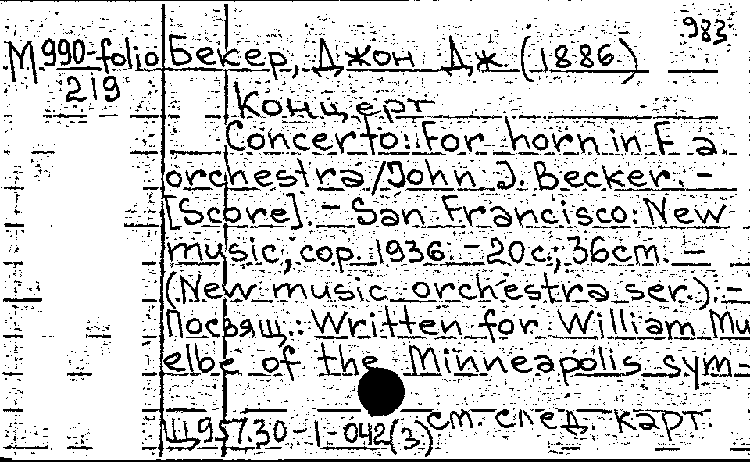 983
M 990-folio Бекер, Джон Дж (1886.)
219
Концерт
Concerto: For horn in F a.
orchestra/John J. Becker. -
[Score]. - San Francisco: New
music, cop. 1936. - 20 с.; 36 cm. -
(New music orchestra ser.). -
Посвящ.: Written for William Mu
elbe of the Minneapolis sym-
см. след. карт.
Щ957.30-1-042(3)